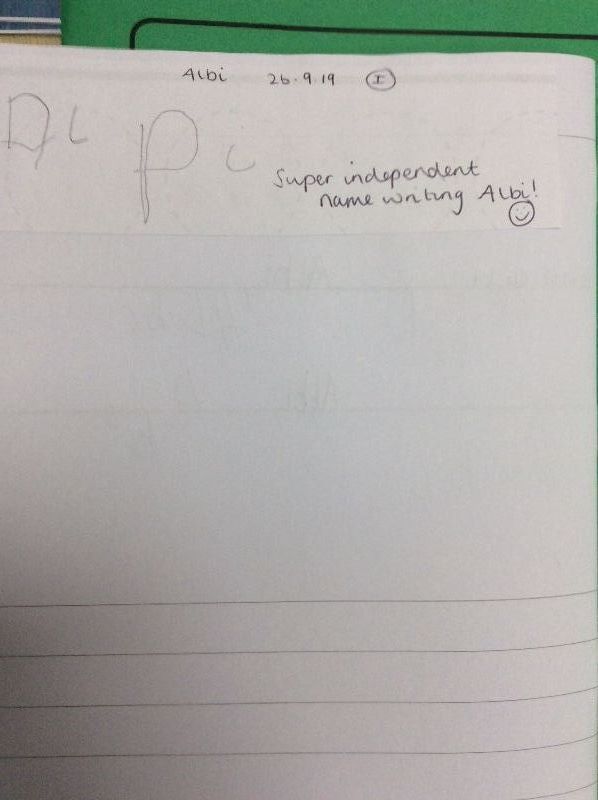 Albi 26.9.19 I
A L P i
Super independent
name writing Albi!